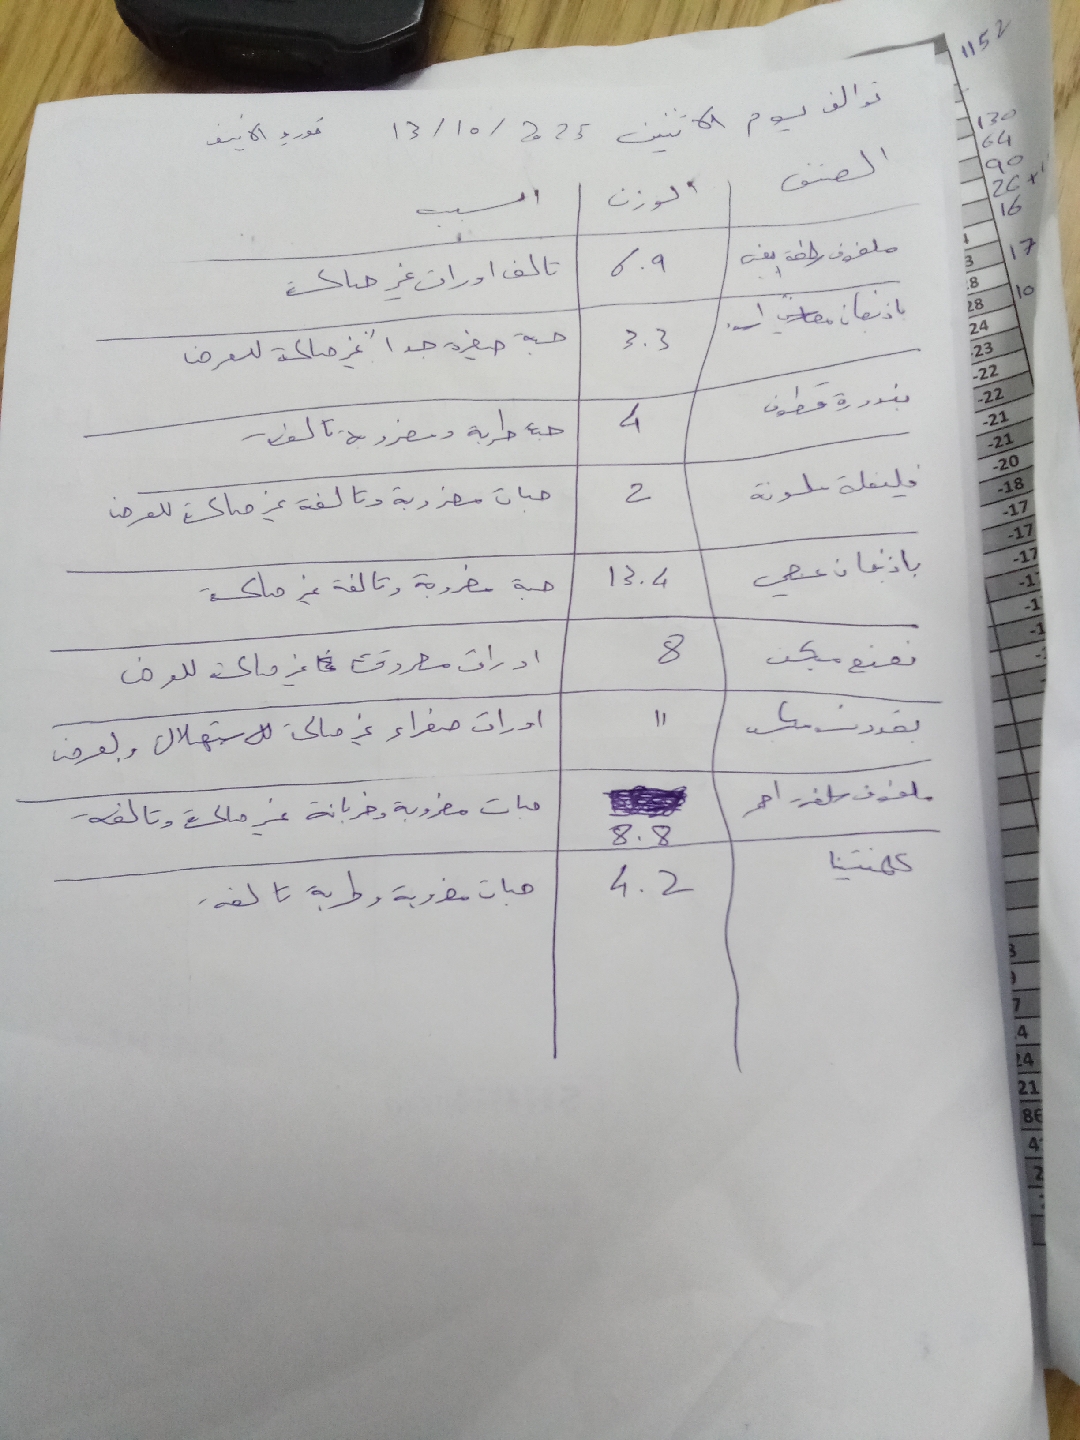 توالف ليوم الاثنين 13/10/2025 توريد الاثنين
الصنف الوزن السبب
ملفوف سلطة ابيض 6.9 تالف اوراق غير صالحة
باذنجان 3.3 حبة صغيرة جدا" غير صالحة للعرض
بندورة قطوف 4 حبة طرية ومضروبة تالفة
فليفلة ملونة 2 حبات مضروبة وتالفة غير صالحة للعرض
باذنجان عجمي 13.4 حبة مضروبة وتالفة غير صالحة
نعنع مبكت 8 اوراق محروقة غير صالحة للعرض
بقدونس 11 اوراق صفراء غير صالحة للاستهلاك ولعرض
ملفوف سلطة احمر 8.8 حبات مضروبة وخربانة غير صالحة وتالفة
كلمنتينا 4.2 حبات مضروبة وطرية تالفة
1152
130
64
90
16
17
10
28
24
-23
-22
-22
-21
-21
-20
-18
-17
-17
-17
24
21